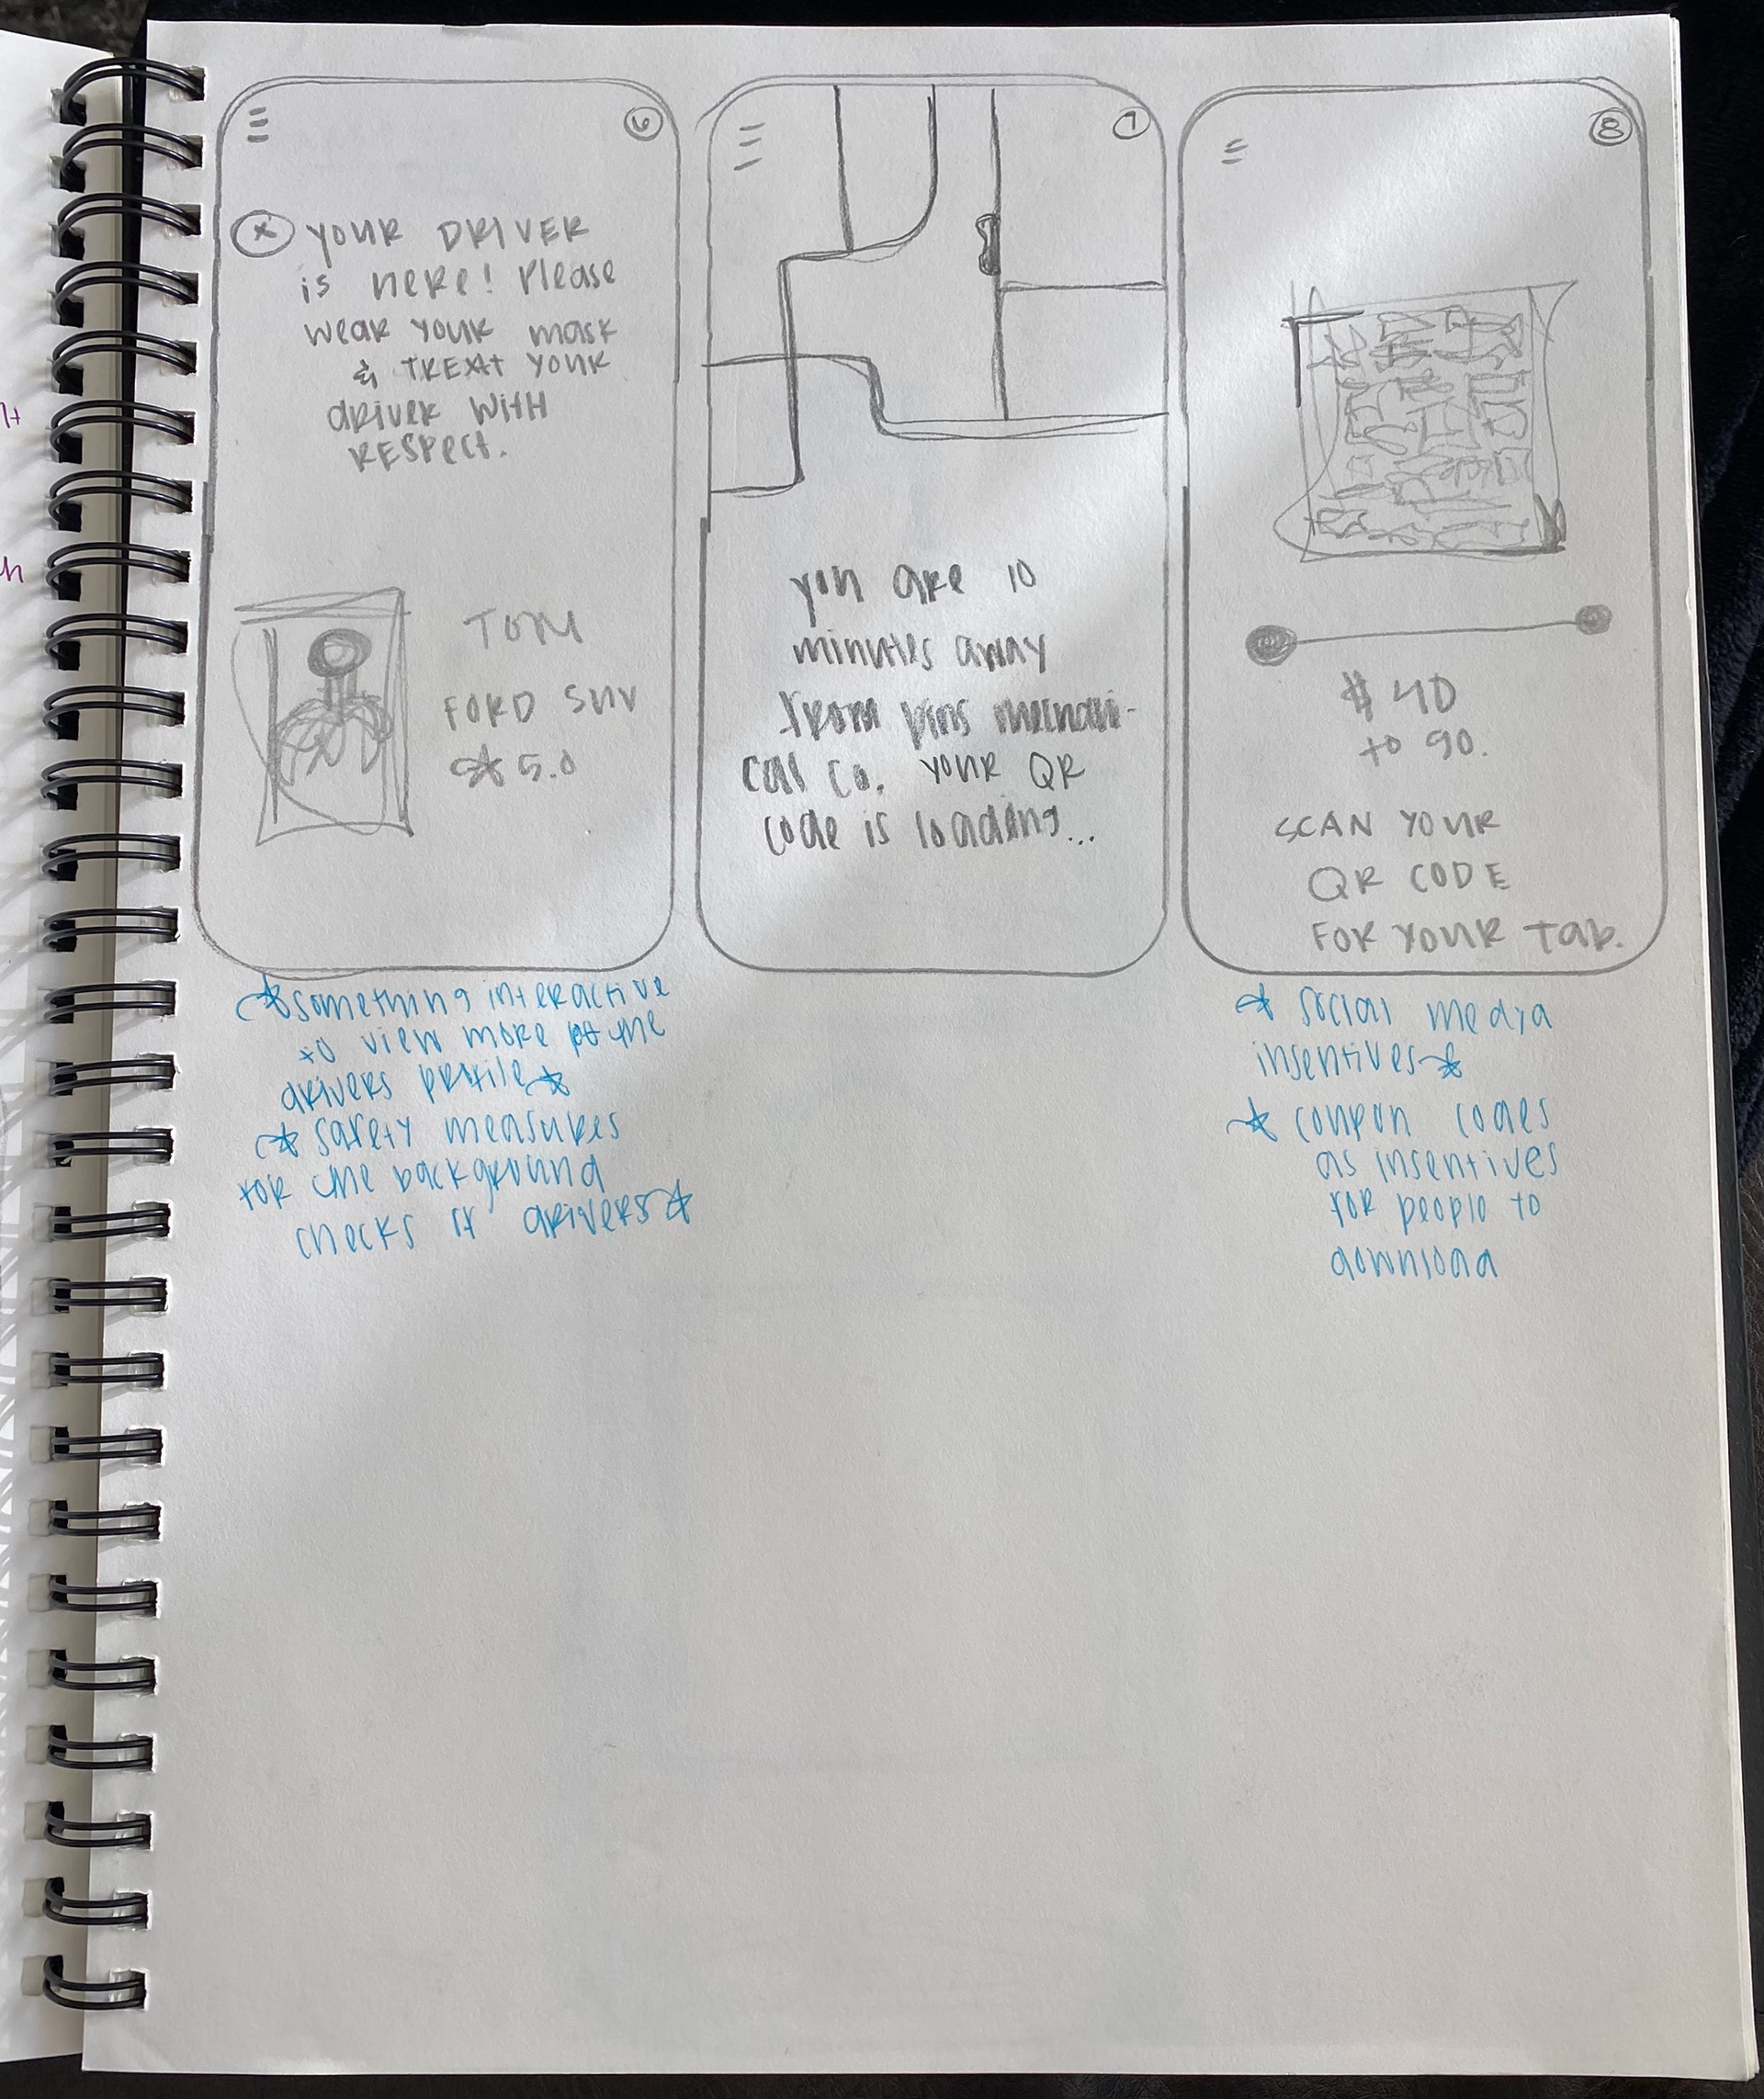 6
YOUR DRIVER
is HERE! Please
wear your mask
& TREAT YOUR
driver WITH
RESPECT.
TOM
FORD SUV
5.0
7
you are 10
minutes away
from pins mechani-
cal co. your QR
code is loading...
8
$ 40
to 90.
SCAN YOUR
QR CODE
FOR YOUR Tab.
something interactive
to view more of the
drivers profile
safety measures
for the background
checks of drivers
social media
insentives
coupon codes
as insentives
for people to
download